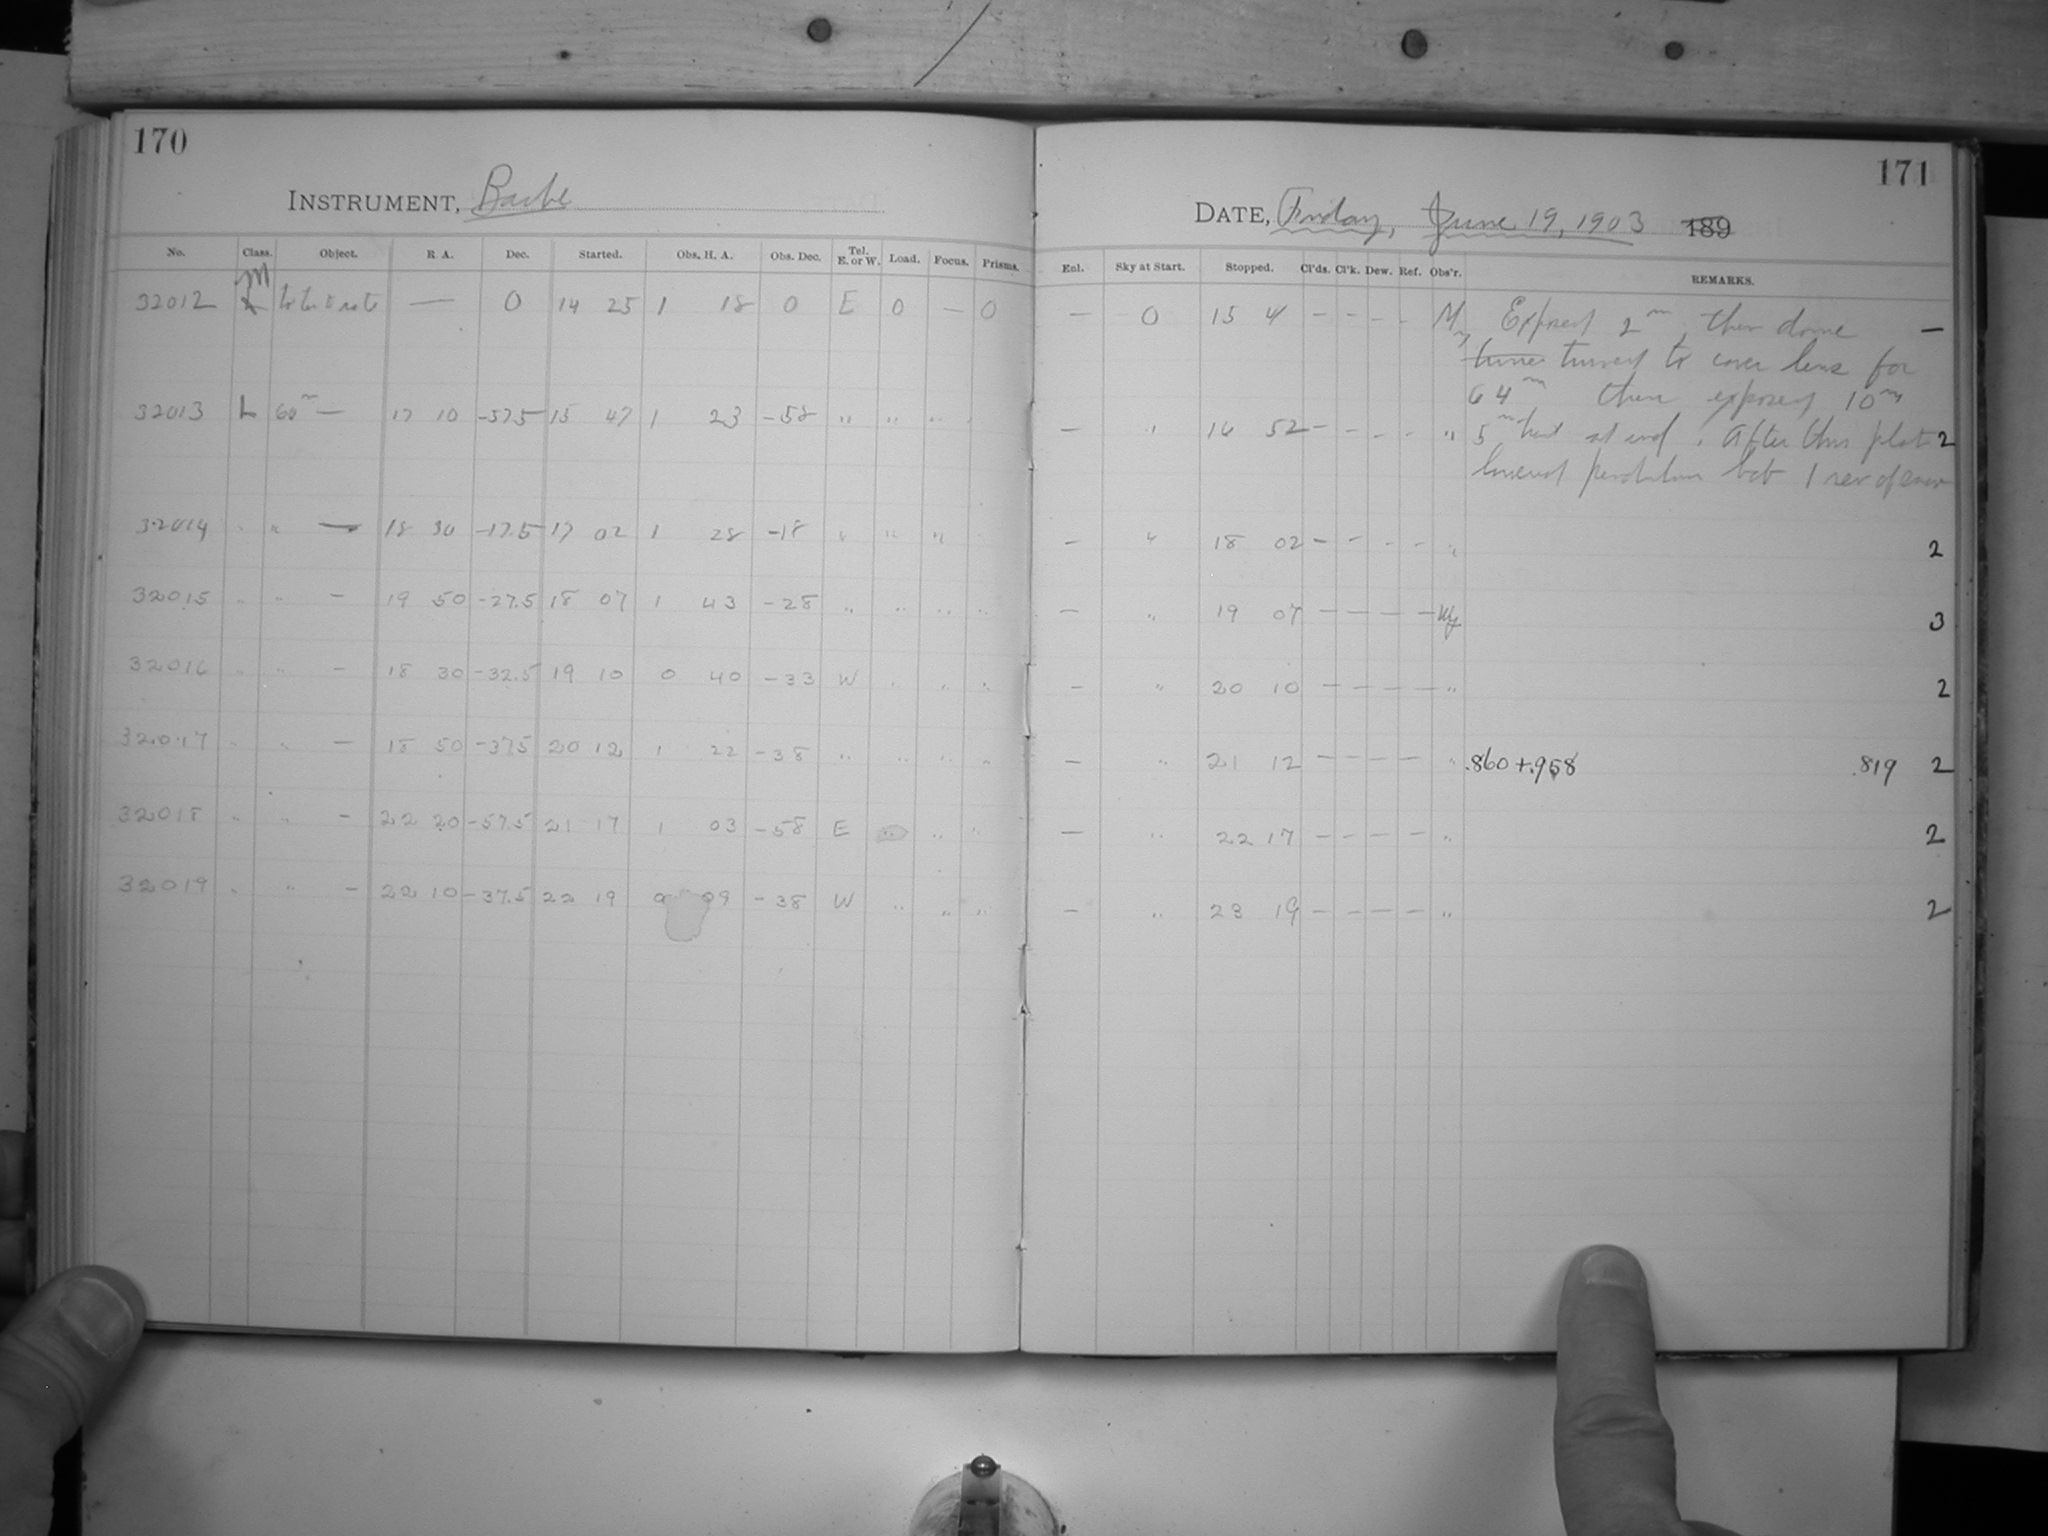 170
INSTRUMENT, Bache
No. Class. Object. R A. Dec. Started. Obs. H. A. Obs. Dec. Tel. E. or W. Load. Focus. Prisms.
M
32012 L to test rate — 0 14 25 1 18 0 E 0 — 0
32013 L 60m — 17 10 -57.5 15 47 1 23 -58 " " " "
32014 " " — 18 30 -17.5 17 02 1 28 -18 " " " "
32015 " " — 19 50 -27.5 18 07 1 43 -28 " " " "
32016 " " — 18 30 -32.5 19 10 0 40 -33 W " " "
32017 " " — 18 50 -37.5 20 12 1 22 -38 " " " "
32018 " " — 22 20 -57.5 21 17 1 03 -58 E " " "
32019 " " — 22 10 -37.5 22 19 0 09 -38 W " " "
171
DATE, Friday, June 19, 1903 189
Enl. Sky at Start. Stopped. Cl'ds. Cl'k. Dew. Ref. Obs'r. REMARKS.
— 0 15 4 — — — — M Exposed 2m, then dome —
turned to cover lens for
64m then exposed 10m
— " 16 52 — — — — " 5m at end. After this plate 2
lowered pendulum bob 1 rev of
— " 18 02 — — — — " 2
— " 19 07 — — — — 3
— " 20 10 — — — — " 2
— " 21 12 — — — — " .860 + .958 .819 2
— " 22 17 — — — — " 2
— " 23 19 — — — — " 2